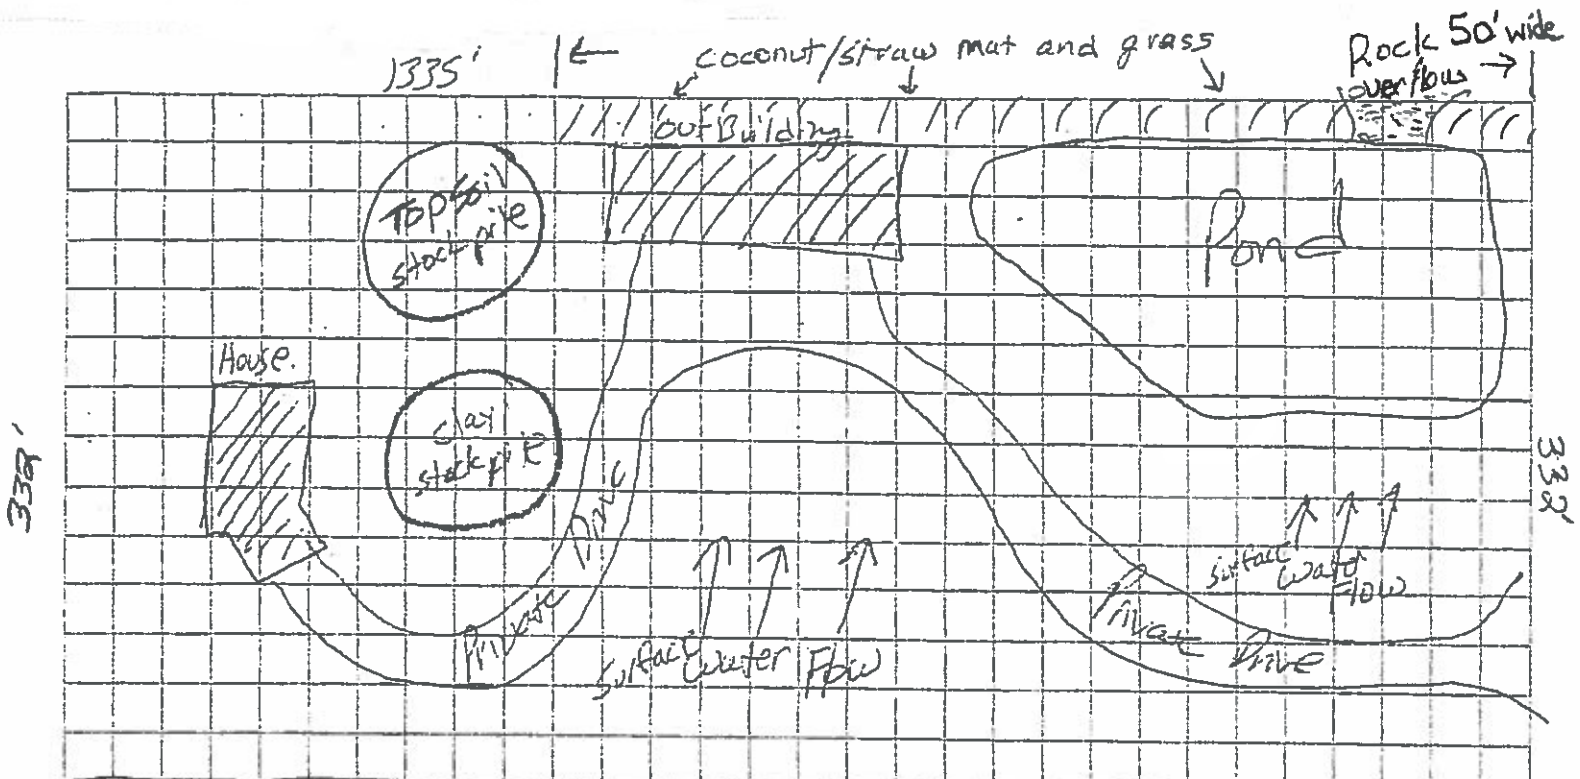 1335'
coconut/straw mat and grass
Rock 50' wide
overflow
outBuilding
TopSoil
stockpile
Pond
House.
Clay
stockpile
332'
332'
Private Drive
Surface Water Flow
Surface
Water
Flow
Private Drive